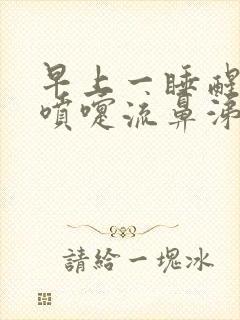 早上一睡醒
噴嚏流鼻涕
請給一塊冰